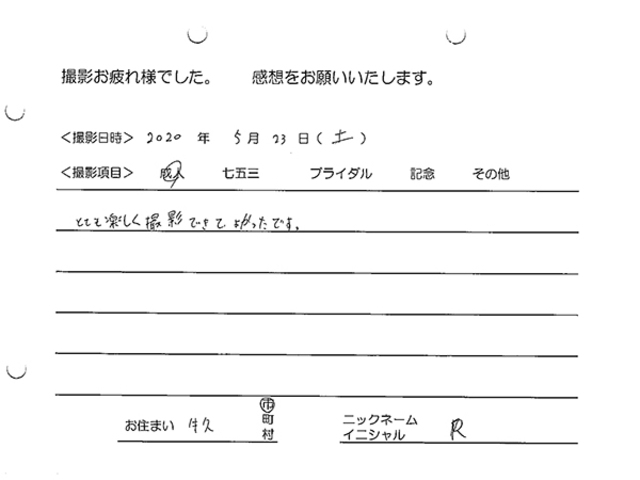 撮影お疲れ様でした。 感想をお願いいたします。
<撮影日時> 2020 年 5月 23 日(土)
<撮影項目> 成人 七五三 ブライダル 記念 その他
とても楽しく撮影できてよかったです。
お住まい 牛久 市町村
ニックネーム
イニシャル R